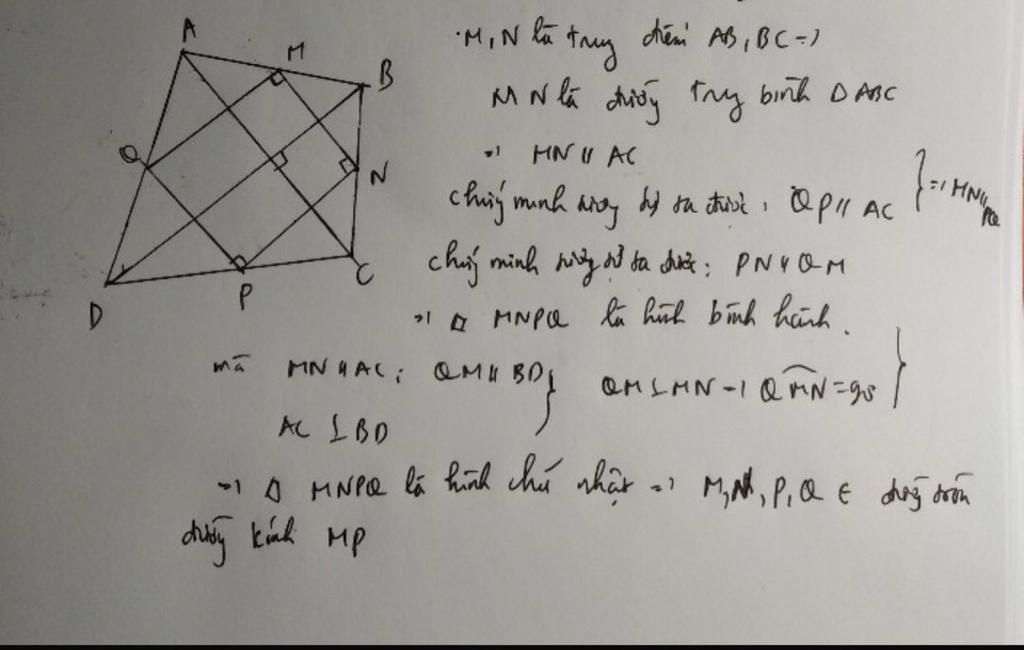 A
M
B
Q
N
D
P
C
. M, N là trung điểm AB, BC ⇒
MN là đường trung bình Δ ABC
⇒ MN // AC
chứng minh tương tự ta được : QP // AC } ⇒ MN // PQ
chứng minh tương tự ta được : PN // QM
⇒ □ MNPQ là hình bình hành .
mà MN // AC ; QM // BD } QM ⊥ MN ⇒ QMN = 90 }
AC ⊥ BD
⇒ □ MNPQ là hình chữ nhật ⇒ M, N, P, Q ∈ đường tròn
đường kính MP